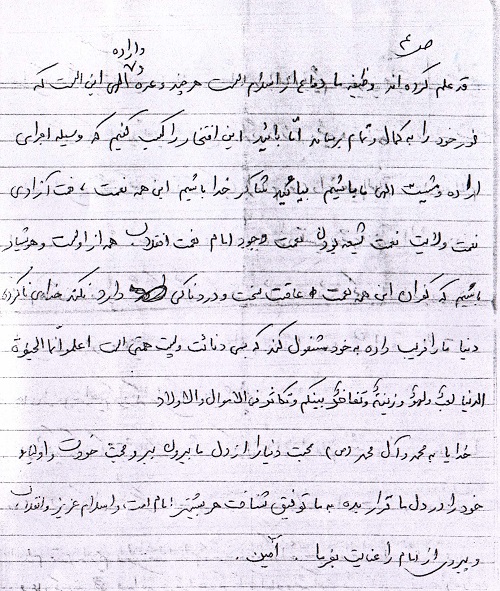 ص ۴
و اراده
قد علم کرده اند وظیفه ما دفاع از اسلام است هر چند وعده الهی این است که
نور خود را به کمال و تمام برساند اما بیائید این افتخار را کسب کنیم که وسیله اجرای
اراده و مشیت الهی ما باشیم بیائید شاکر خدا باشیم این همه نعمت، نعمت آزادی
نعمت ولایت نعمت شیعه بودن نعمت وجود امام نعمت انقلاب همه از اوست و هوشیار
باشیم که کفران این همه نعمت عاقبت سخت و دردناکی دارد نکند خدای ناکرده
دنیا ما را فریب داده به خود مشغول کند که بس دنائت و پستی است اعلموا انما الحیوة
الدنیا لعبٌ و لهوٌ و زینةٌ و تفاخرٌ بینکم و تکاثر فی الاموال و الاولاد
خدایا به محمد و آل محمد (ص) محبت دنیا را از دل ما بیرون ببر و محبت خودت و اولیاء
خود را در دل ما قرار بده به ما توفیق شناخت هر بیشتر امام امت، و اسلام عزیز و انقلاب
و پیروی از امام را عنایت بفرما . آمین .